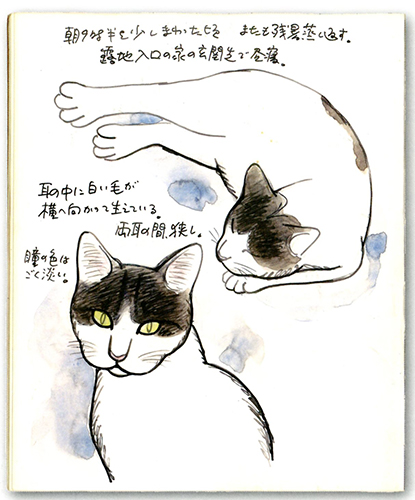 朝9時半を少しまわったころ またも残暑蒸し返す。
露地入口の家の玄関先で昼寝。
耳の中に白い毛が
横へ向かって生えている。
両耳の間、狭し。
瞳の色は
ごく淡い。